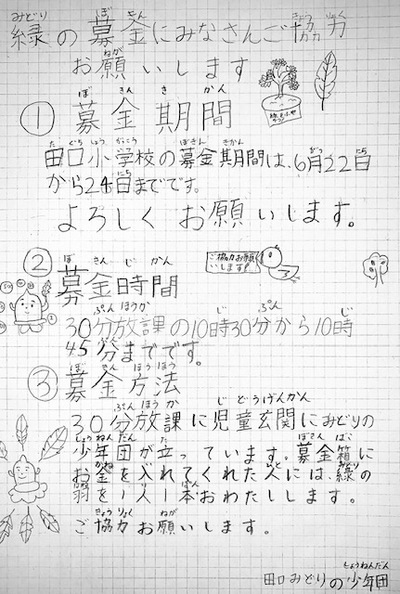 緑の募金にみなさんご協力
お願いします
①募金期間
田口小学校の募金期間は、6月22日
から24日までです。
よろしくお願いします。
ご協力お願
いします!
②募金時間
30分放課の10時30分から10時
45分までです。
③募金方法
30分放課に児童玄関にみどりの
少年団が立っています。募金箱に
お金を入れてくれた人には、緑の
羽を1人1本おわたしします。
ご協力お願いします。
田口みどりの少年団